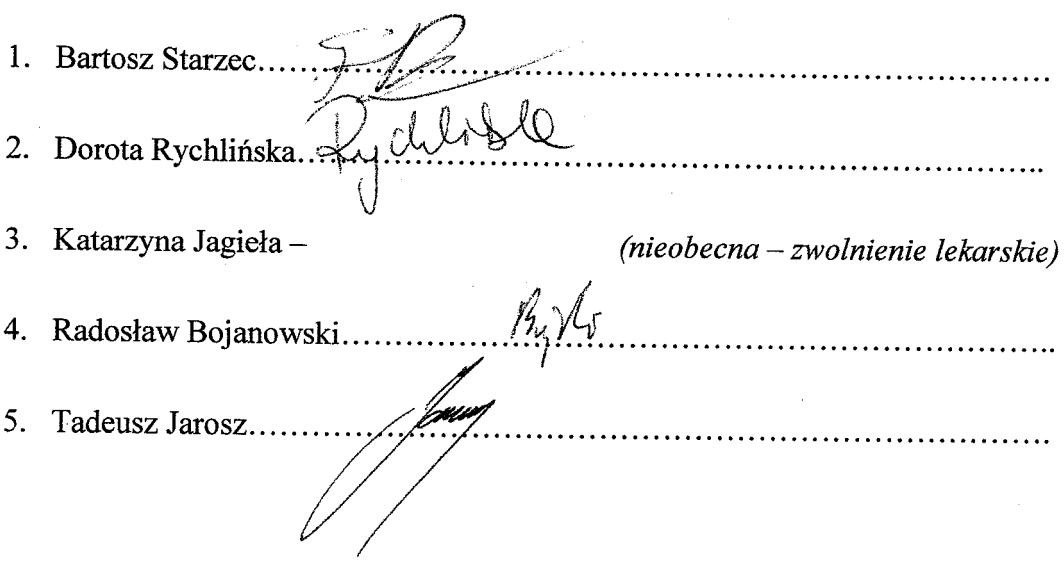 1. Bartosz Starzec……………………………………………………………
2. Dorota Rychlińska……………………………………………………………
3. Katarzyna Jagieła – (nieobecna – zwolnienie lekarskie)
4. Radosław Bojanowski……………………………………………………………
5. Tadeusz Jarosz……………………………………………………………